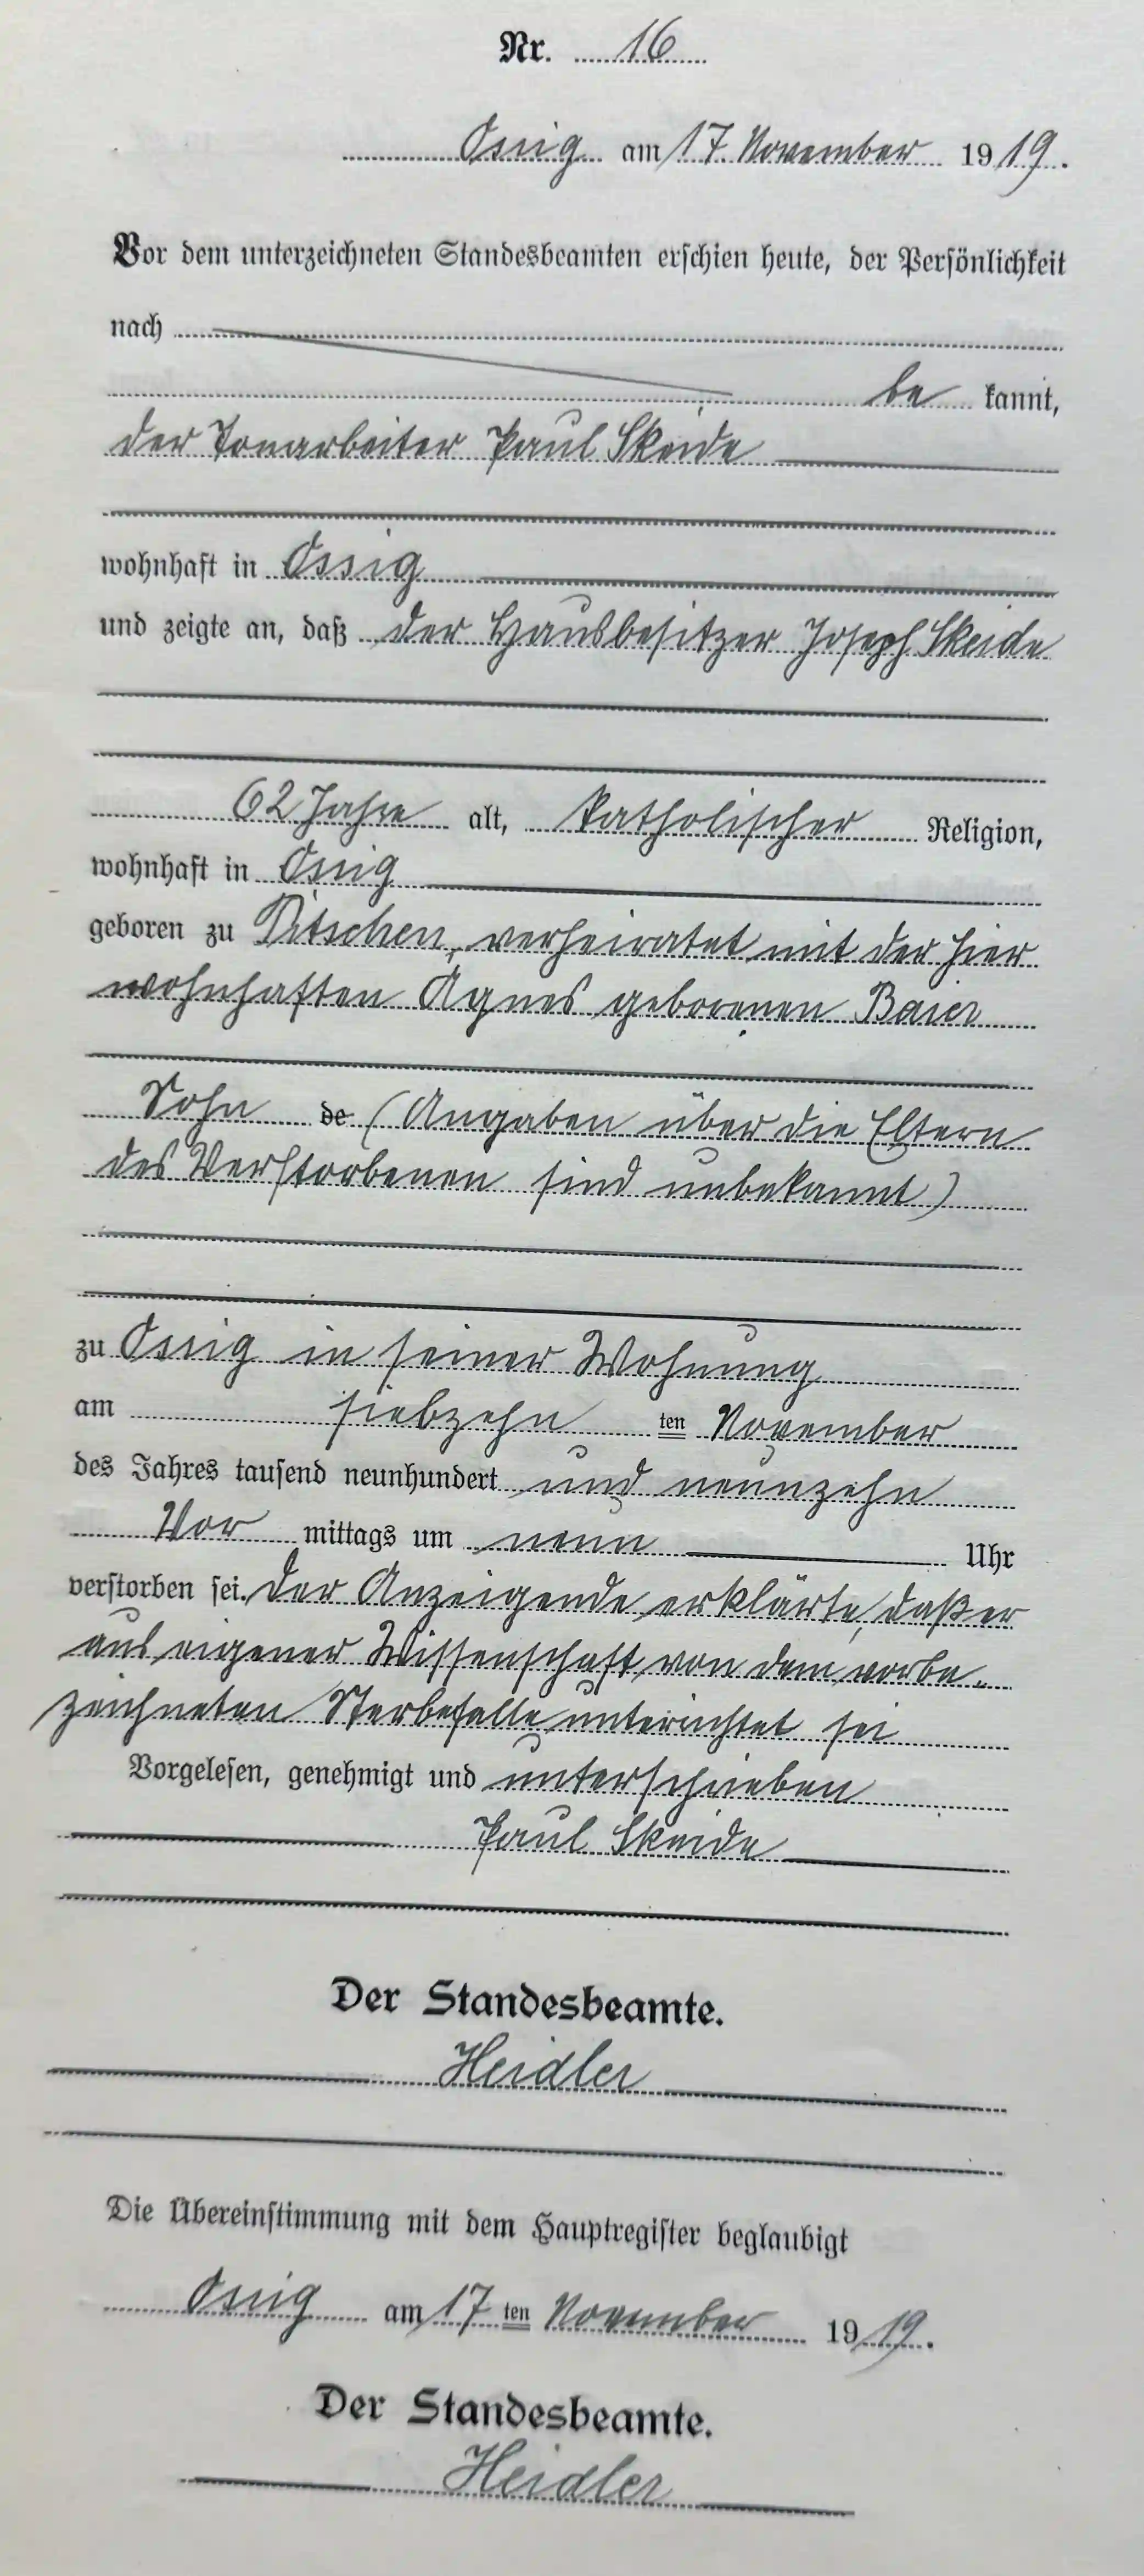 Nr. 16
Ossig am 17. November 1919.
Vor dem unterzeichneten Standesbeamten erschien heute, der Persönlichkeit
nach
be kannt,
der Tonarbeiter Paul Skeide
wohnhaft in Ossig
und zeigte an, daß der Hausbesitzer Joseph Skeide
62 Jahre alt, katholischer Religion,
wohnhaft in Ossig
geboren zu Pitschen, verheiratet mit der hier
wohnhaften Agnes geborenen Baier
Sohn de (Angaben über die Eltern
des Verstorbenen sind unbekannt)
zu Ossig in seiner Wohnung
am siebzehn ten November
des Jahres tausend neunhundert und neunzehn
Vor mittags um neun Uhr
verstorben sei. Der Anzeigende erklärte, daß er
aus eigener Wissenschaft von dem vorbe-
zeichneten Sterbefalle unterichtet sei
Vorgelesen, genehmigt und unterschrieben
Paul Skeide
Der Standesbeamte.
Heidler
Die Übereinstimmung mit dem Hauptregister beglaubigt
Ossig am 17 ten November 1919.
Der Standesbeamte.
Heidler